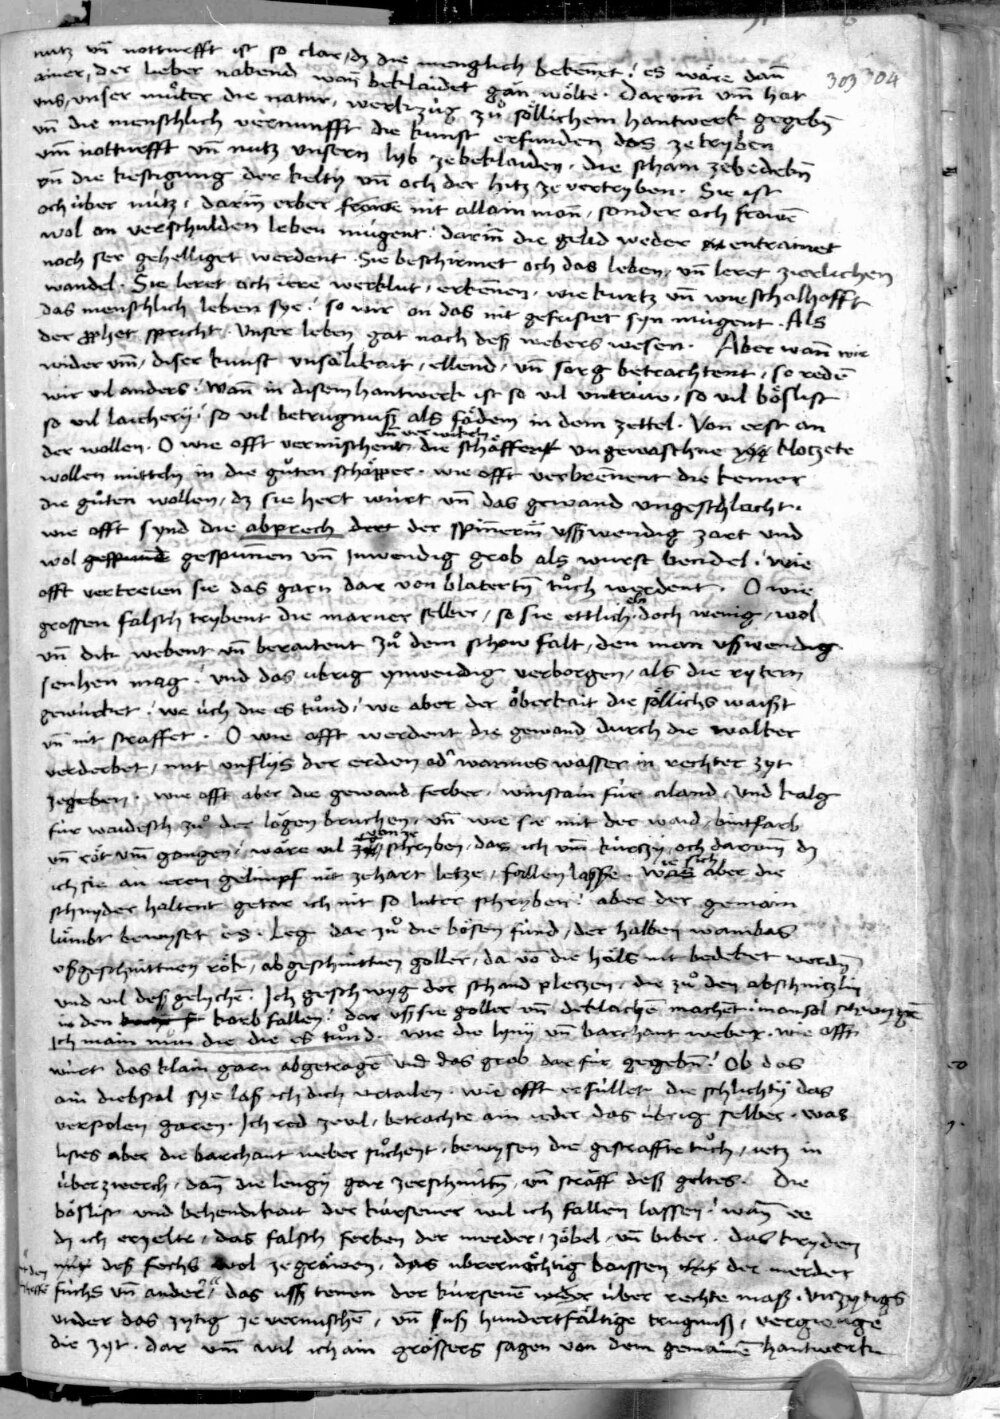 303 304
nutz vnd notturfft ist so clar, dz die menglich bekennet! es wäre dann
ainer, der lieber nabend wann beklaidet gan wölte. Darumm vmm hat
vns, vnser muͦter die natur, werkzüg zuͦ söllichem hantwerk gegebn
vnd die menschlich vernunfft die kunst erfunden das ze tryben
vmm notturfft vnd nutz vnsern lyb ze beklaiden, die scham ze bedeckn
vnd die kestigung der keltin vnd och der hitz ze vertryben. Sie ist
och über nütz, darinn erber nit allain mann, sonder och frowen
wol on verschulden leben mugent. darinn die gelid weder entrannet
noch ser gehelliget werdent. Sie beschirmet och das leben, vnd leret zierlichen
wandel. Sie leret och irre werklüt, erkennen, wie kurtz vnd wie schalhafft
das menschlich leben sye! so wir on das nit gefristet syn mügent. Als
der prophet spricht. Vnser leben gat nach dess webers wesen. Aber wann wir
wider vmm, diser kunst vnsälikait, ellend, vnd sorg betrachtent, so reden
wir vil anders! Wann in disem hantwerk ist so vil vntrüw, so vil böslist
so vil laichery! so vil betrugnuss als fädem in dem zettel. Von erst an
der wollen. O wie offt vermischent die schäffer vngewaschne klotzete
wollen mitteln in die guͦten schäpper. wie offt verbrennent die kemer
die guͦten wollen, dz sie hert würt vnd das gewand vngeschlacht.
wie offt synd die abprech der spinnerinn vsswendig zart vnd
wol gespunnen vnd Inwendig grob als wurst bendel! wie
offt vertreten sie das garn dar von blatertn tuͦch werdent. O wie
grossen falsch trybent die marner selber, so sie ettlich eln doch wenig, wol
vnd dik webent vnd beraitent zuͦ dem schow falt, den man vsswendig
senhen mag! vnd das übrig ynwendig verborgen, als die rytern
gewürket! we üch die es tuͦnd! we aber der oberkait die söllichs waisst
vnd nit straffet. O wie offt werdent die gewand durch die walker
verderbet, mit vnflys der erden oder warmes wasser in rechter zyt
zegeben. wie offt aber die gewand ferber, winstain für aland, vnd kalg
für waidesch zuͦ der lögen bruchen, vnd wie sie mit der waid, bintfarb
vnd röt vmm gangen! wäre vil schryben, das ich vmm kürtzin, och darumm dz
ich sie an ieren gelimpf nit zehart letze, fallen lasse. Was aber die
schnyder haltent getar ich nit so luter schryben! aber der gemain
lümbt bewyset es. Leg dar zuͦ die bösen fünd, der halben wambas
vssgeschnittnen rök, abgeschnitten goller, da von die häls nit bedeket werdn
vnd vil dess gelychen. Ich geschwyg der schand pletzen, die zuͦ den abschnitzlin
in den korb fallen! dar vss sie goller vnd deklachen machent. man sol schwygen
Ich main nün die die es tuͦnd. wie die lynin vnd barchant weber. wie offt
würt das klain garn abgetragen vnd das grob dar für gegebn! Ob das
ain diebstal sye lass ich dich vrtailen. wie offt erfüllet die schlichtin das
verstolen garen. Ich red zevil, betrachte ain ieder das übrig selber. was
listes aber die barchant weber suͦchent, bewysen die gestraffte tuͦch, ietz in
überzwerch, dann die lengin gar zerschnitten, vnd straff dess geltes. Die
böslist vnd behendikait der kürsener wil ich fallen lassen! wann ee
dz ich erzelte, das falsch ferben der merder, zöbel, vnd biber. das kryden
dess fechs wol zegräwen, das übernächtig baissen der merder
füchs vnd ander, das vss tenen der kürsenen über rechte mass. vnzytigs
vnder das zytig ze vermischen, vnd sust hundertfältige trugnuss, vergienge
die zyt. dar vmm wil ich ain grössers sagen von dem gemainen hantwerk